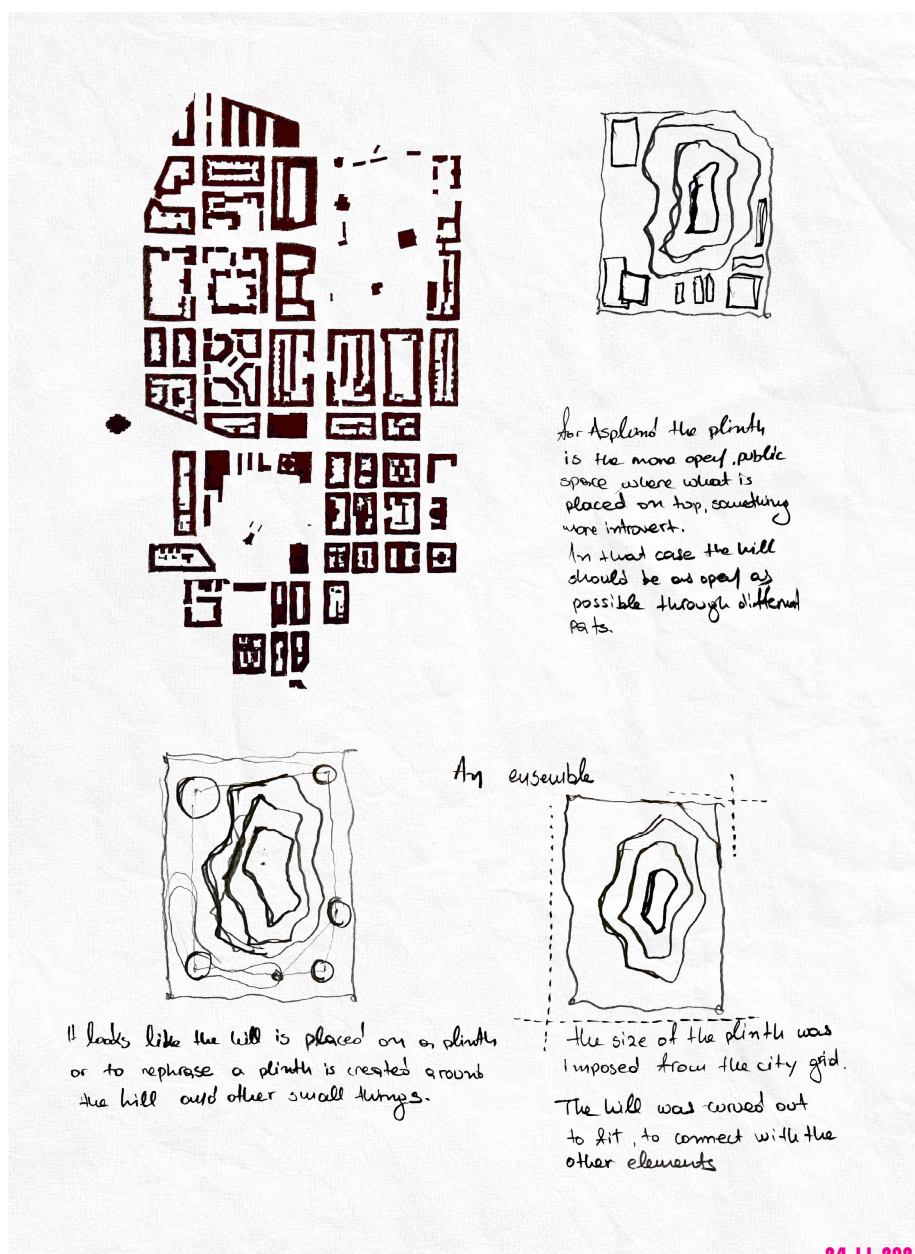 for Asplund the plinth
is the more open, public
space where what is
placed on top, something
more introvert.
In that case the hill
should be as open as
possible through different
An ensemble
It looks like the hill is placed on a plinth
or to rephrase a plinth is created around
the hill and other small things.
the size of the plinth was
imposed from the city grid.
The hill was carved out
to fit, to connect with the
other elements